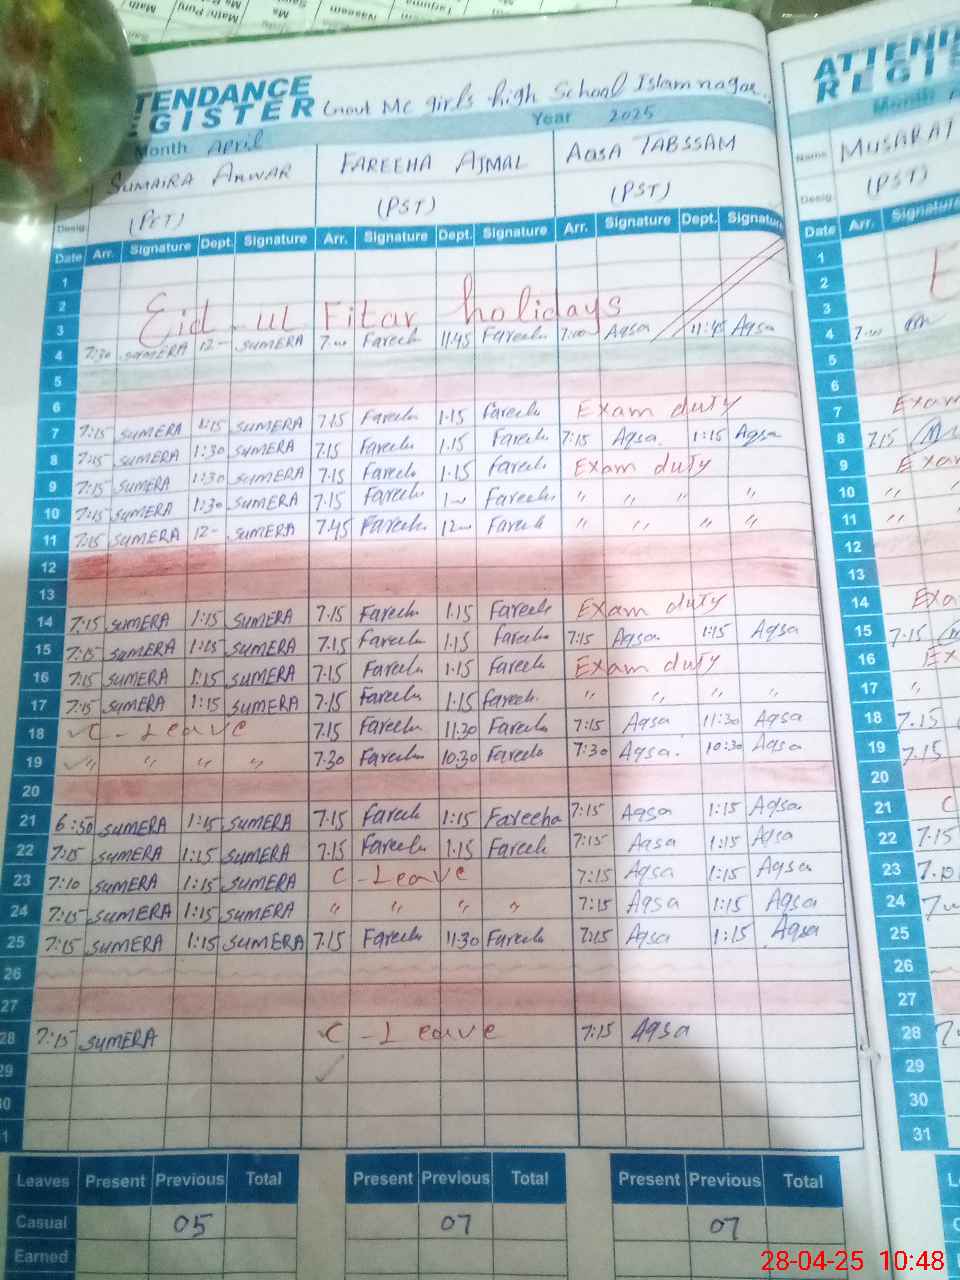 TENDANCE
GISTER Govt MC girls high School Islamnagar.
Month April Year 2025
SUMAIRA ANWAR FAREEHA AJMAL AQSA TABSSAM
Desig. (PET) (PST) (PST)
Date Arr. Signature Dept. Signature Arr. Signature Dept. Signature Arr. Signature Dept. Signature
1
2 Eid-ul Fitar holidays
3
4 7:30 SUMERA 12- SUMERA 7:00 Fareeh 11:45 Fareeh 7:00 Aqsa 11:45 Aqsa
5
6
7 7:15 SUMERA 1:15 SUMERA 7.15 Fareeh 1.15 Fareeh Exam duty
8 7:15 SUMERA 1:30 SUMERA 7.15 Fareeh 1.15 Fareeh 7:15 Aqsa 1:15 Aqsa
9 7:15 SUMERA 1:30 SUMERA 7.15 Fareeh 1.15 Fareeh Exam duty
10 7:15 SUMERA 1:30 SUMERA 7.15 Fareeh Fareeh " " " "
11 7:15 SUMERA 12- SUMERA 7.45 Fareeh 12 Fareeh " " " "
12
13
14 7:15 SUMERA 1:15 SUMERA 7.15 Fareeh 1.15 Fareeh Exam duty
15 7:15 SUMERA 1:15 SUMERA 7.15 Fareeh 1.15 Fareeh 7:15 Aqsa 1:15 Aqsa
16 7:15 SUMERA 1:15 SUMERA 7.15 Fareeh 1.15 Fareeh Exam duty
17 7:15 SUMERA 1:15 SUMERA 7.15 Fareeh 1.15 Fareeh " " " "
18 ✓ C - Leave 7.15 Fareeh 11:30 Fareeh 7:15 Aqsa 11:30 Aqsa
19 ✓ " " " " 7.30 Fareeh 10:30 Fareeh 7:30 Aqsa 10:30 Aqsa
20
21 6:50 SUMERA 1:15 SUMERA 7.15 Fareeh 1:15 Fareeha 7:15 Aqsa 1:15 Aqsa
22 7:15 SUMERA 1:15 SUMERA 7.15 Fareeh 1.15 Fareeh 7:15 Aqsa 1:15 Aqsa
23 7:10 SUMERA 1:15 SUMERA C - Leave 7:15 Aqsa 1:15 Aqsa
24 7:15 SUMERA 1:15 SUMERA " " " " 7:15 Aqsa 1:15 Aqsa
25 7:15 SUMERA 1:15 SUMERA 7.15 Fareeh 11:30 Fareeh 7:15 Aqsa 1:15 Aqsa
26
27
28 7:15 SUMERA ✓ C - Leave 7:15 Aqsa
29 ✓
30
31
Leaves Present Previous Total Present Previous Total Present Previous Total
Casual 05 07 07
Earned
ATTEN
REGIS
Month
Name MUSARAT
Desig. (PST)
Date Arr. Signature
1
2 E
3
4 7:00
5
6
7 Exam
8 7.15
9 Exam
10 " "
11 " "
12
13
14 Exa
15 7.15
16 Ex
17 "
18 7.15
19 7.15
20
21 C
22 7.15
23
24
25
26
27
28
29
30
31
28-04-25 10:48